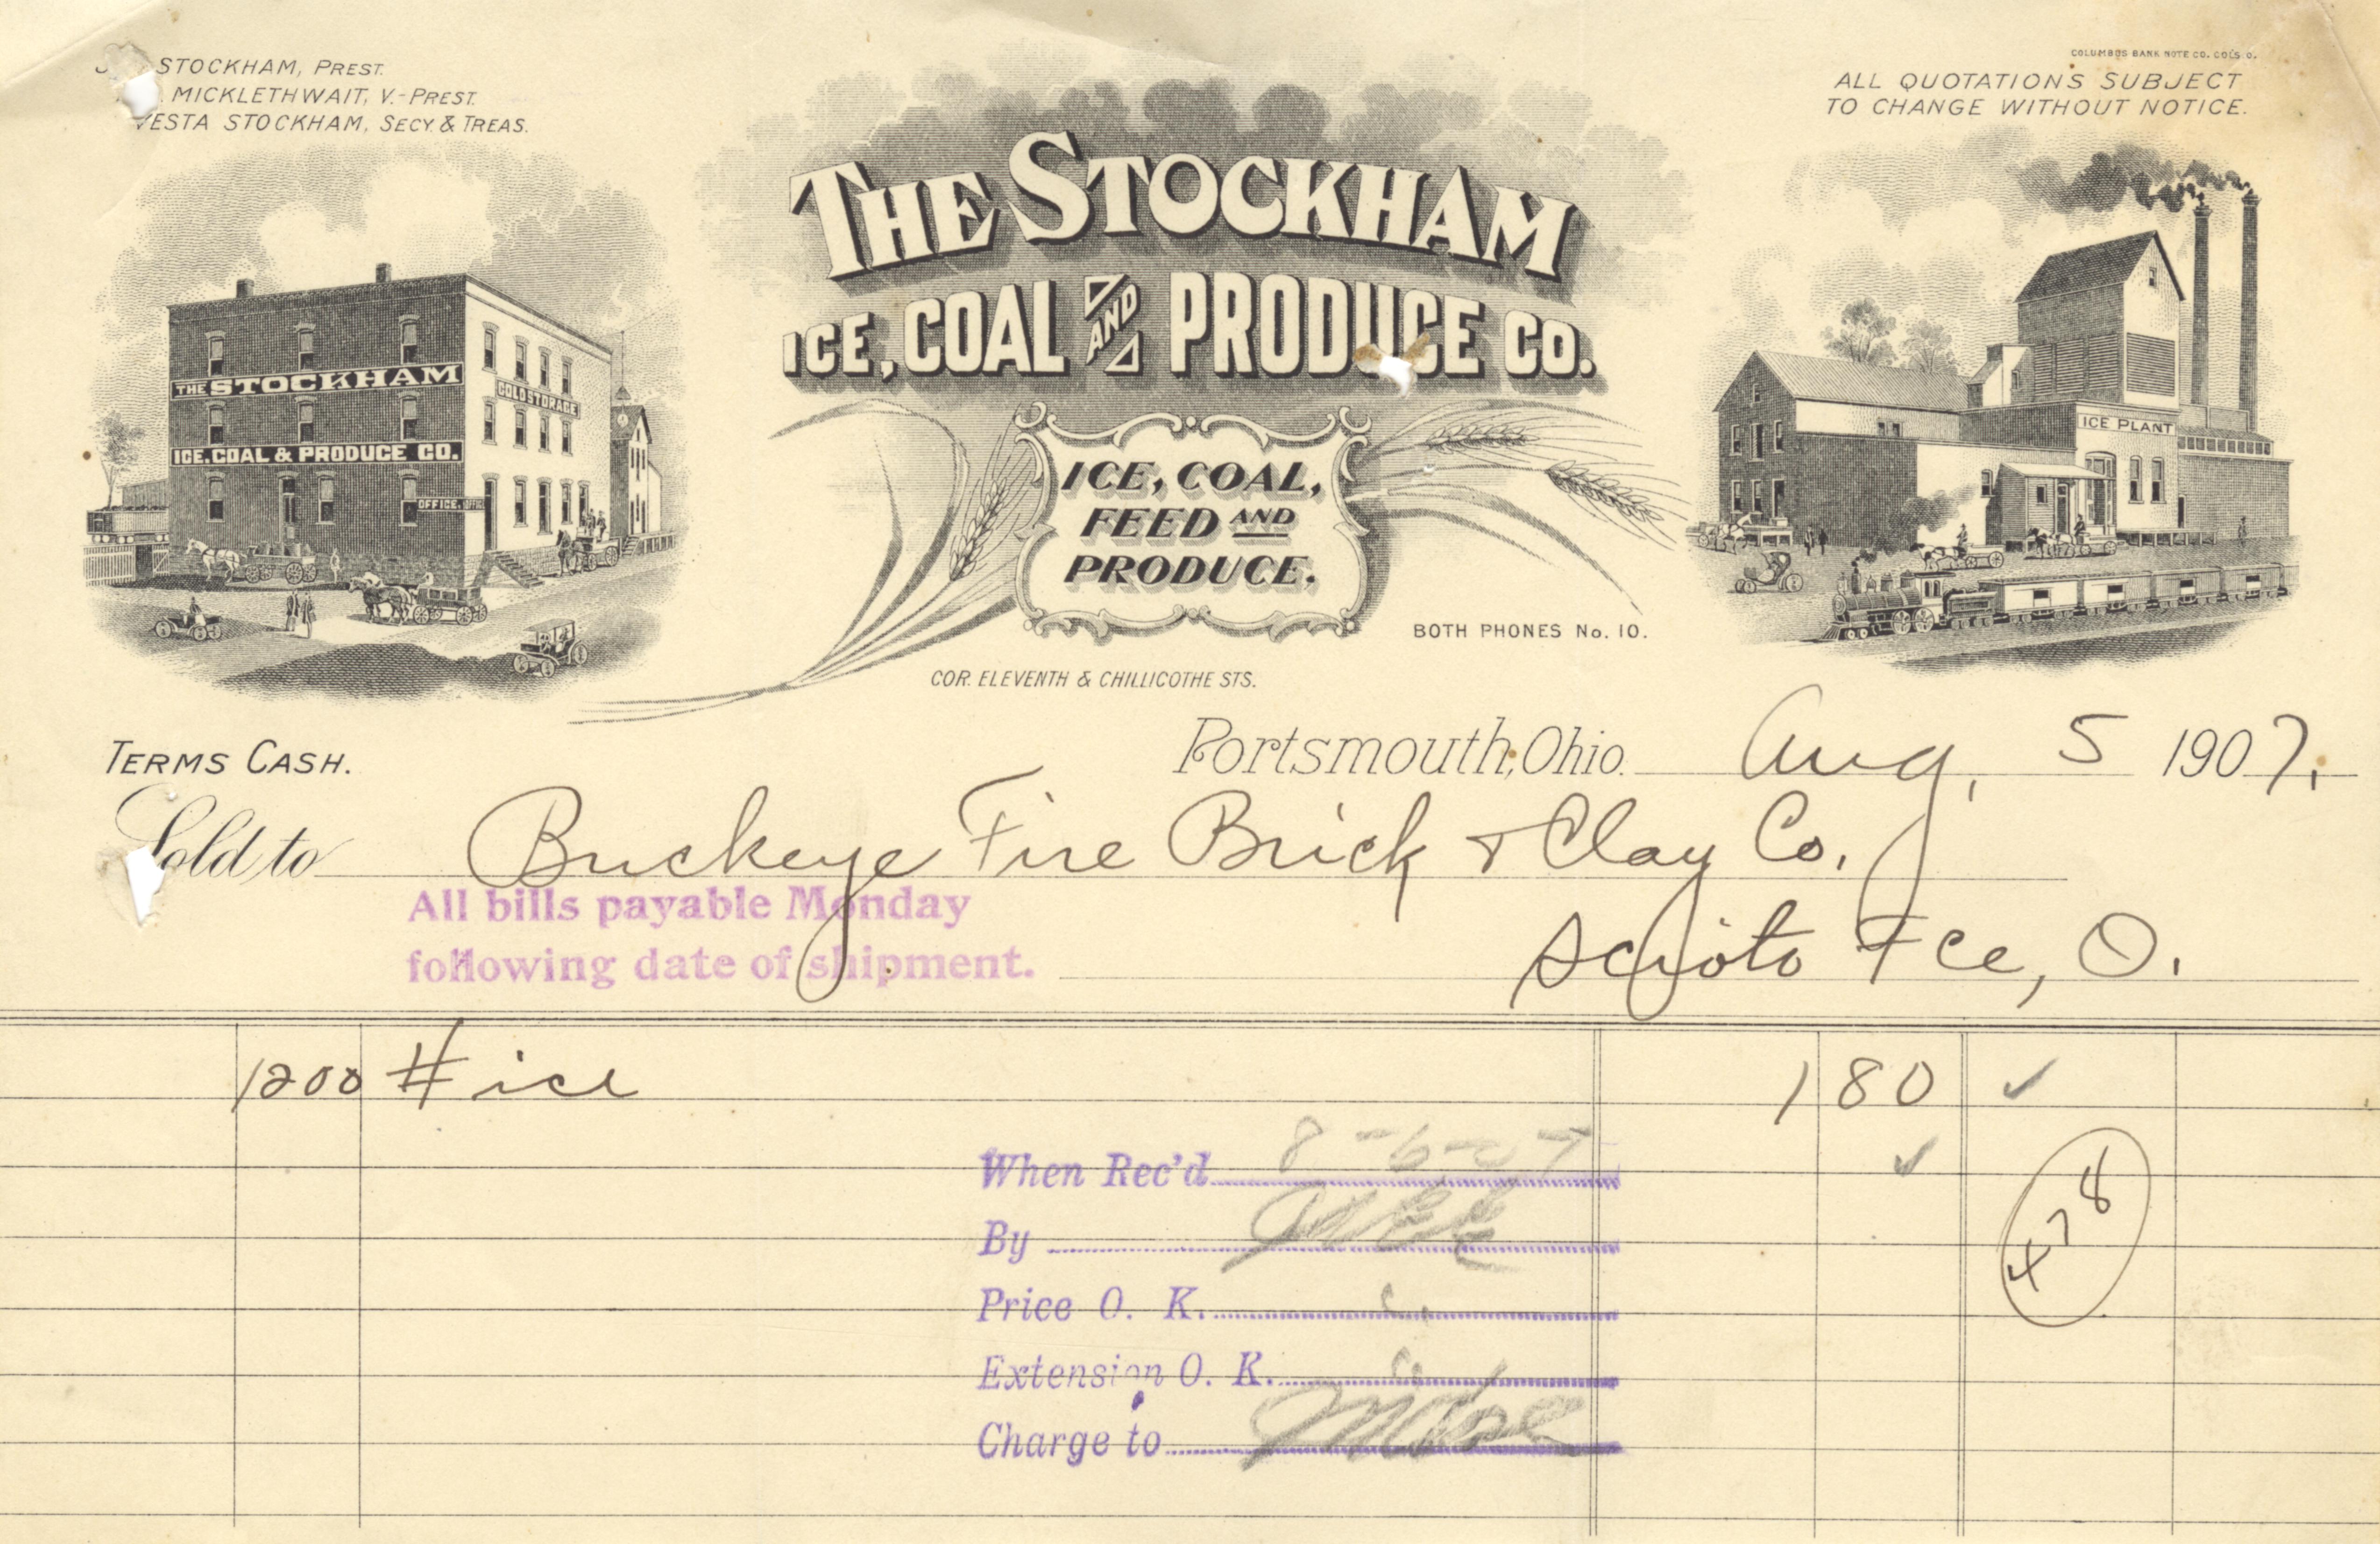 STOCKHAM, PREST.
MICKLETHWAIT, V.-PREST.
VESTA STOCKHAM, SECY. & TREAS.
COLUMBUS BANK NOTE CO. COL'S. O.
ALL QUOTATIONS SUBJECT
TO CHANGE WITHOUT NOTICE.
THE STOCKHAM
ICE, COAL AND PRODUCE CO.
THE STOCKHAM
COLD STORAGE
ICE, COAL & PRODUCE CO.
OFFICE
ICE PLANT
ICE, COAL,
FEED AND
PRODUCE.
BOTH PHONES No. 10.
COR. ELEVENTH & CHILLICOTHE STS.
TERMS CASH.
Portsmouth, Ohio. Aug, 5 1907.
Sold to Buckeye Fire Brick & Clay Co.
All bills payable Monday
following date of shipment.
Scioto Fce, O.
1200 # ice 1 80 ✓
When Rec'd 8-6-07 ✓
478
By
Price O. K.
Extension O. K.
Charge to